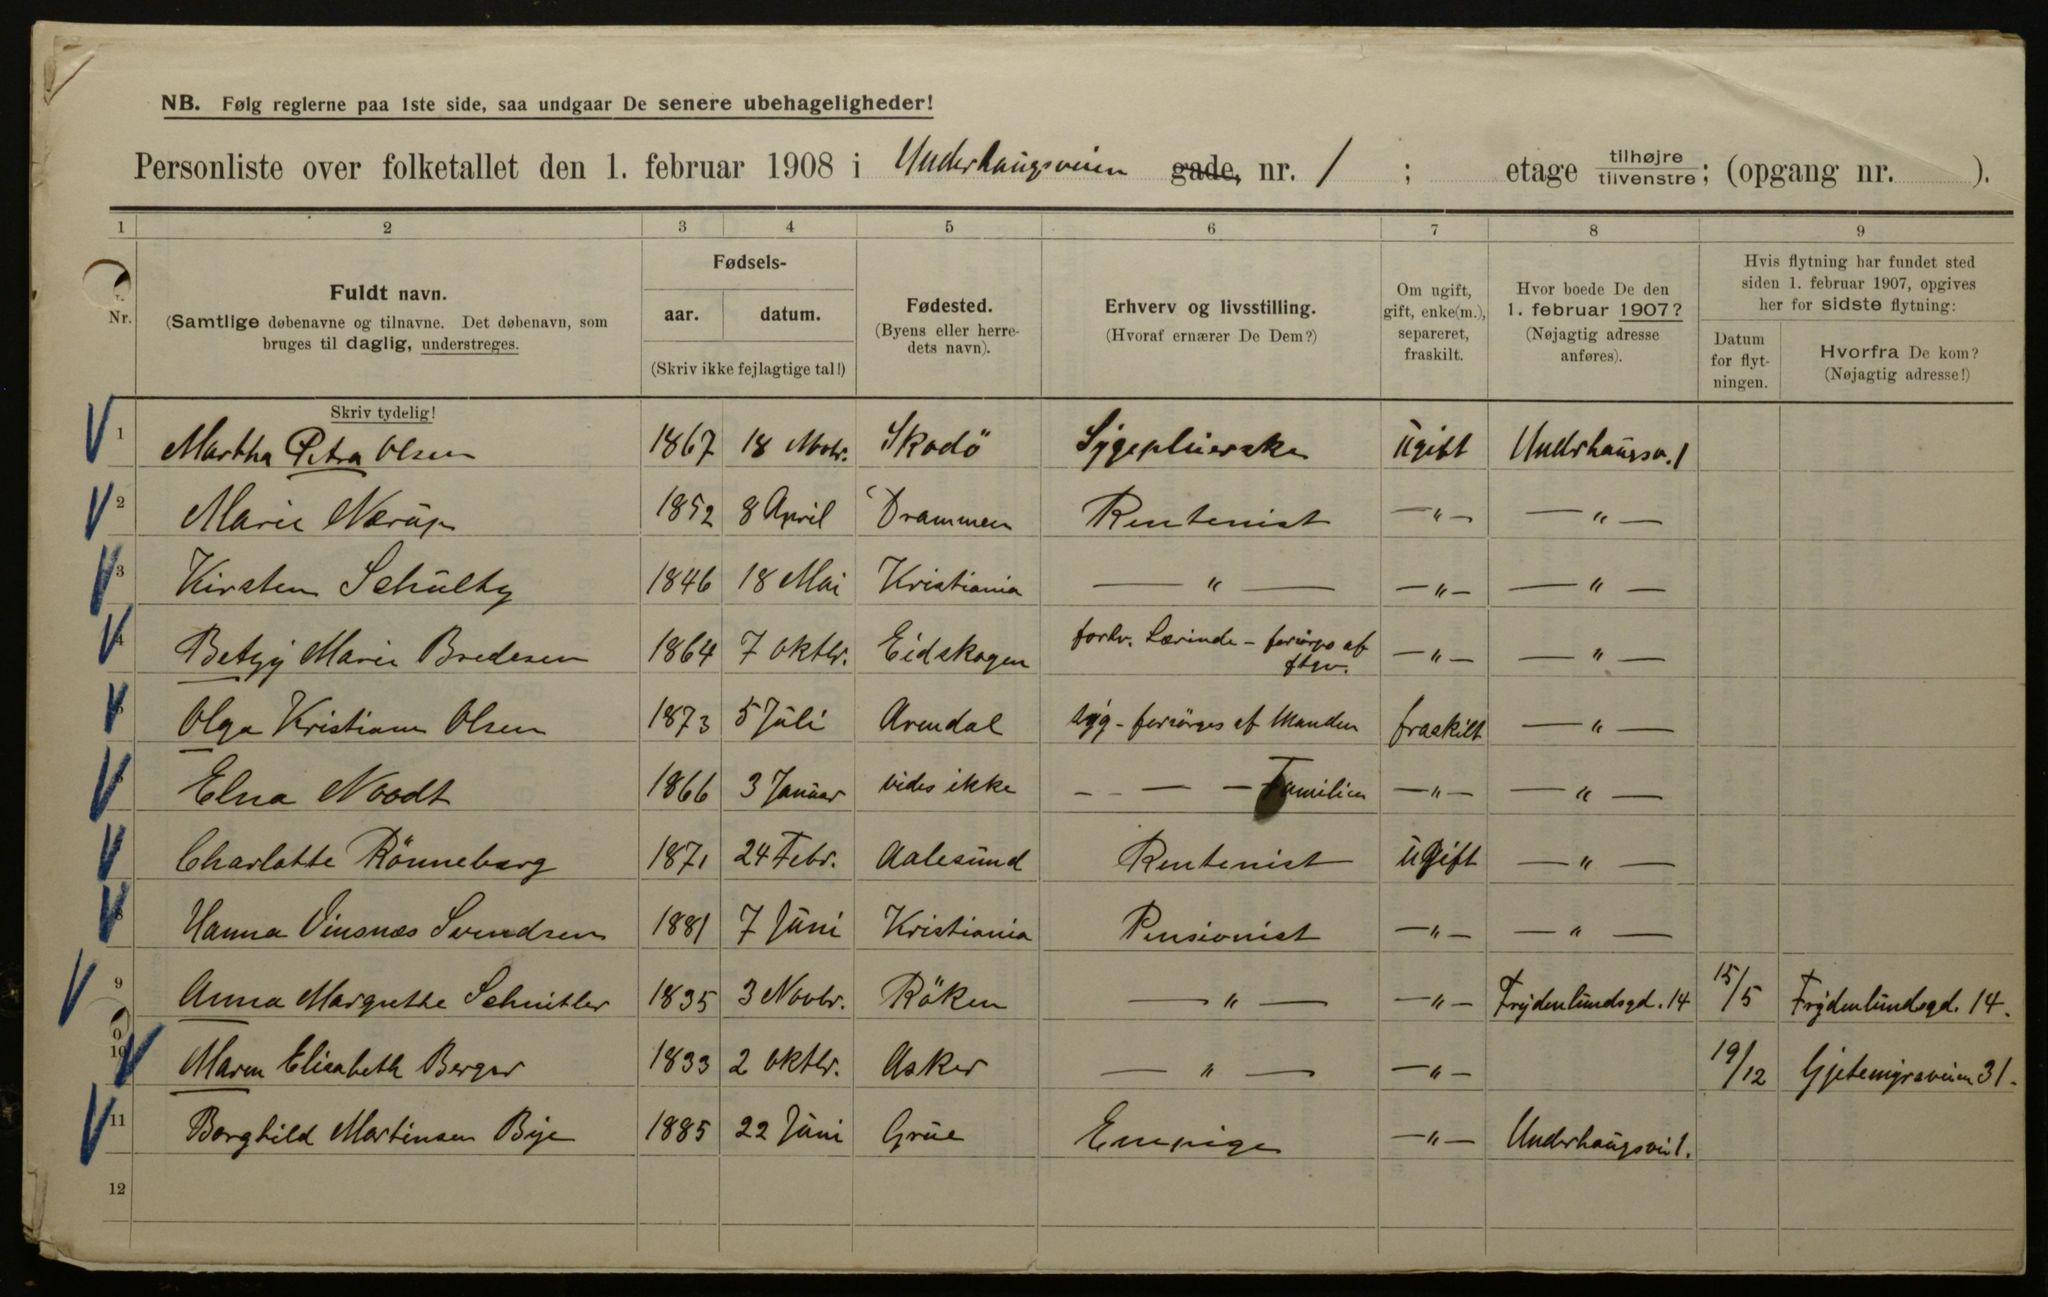 NB. Følg reglerne paa 1ste side, saa undgaar De senere ubehageligheder!
Personliste over folketallet den 1. februar 1908 i Underhaugsveien gade, nr. 1 ; etage tilhøjre tilvenstre; (opgang nr. ).
1 2 3 4 5 6 7 8 9
Nr.
Fuldt navn.
(Samtlige døbenavne og tilnavne. Det døbenavn, som
bruges til daglig, understreges.
Skriv tydelig!
Fødsels-
aar. datum.
(Skriv ikke fejlagtige tal!)
Fødested.
(Byens eller herre-
dets navn).
Erhverv og livsstilling.
(Hvoraf ernærer De Dem?)
Om ugift,
gift, enke(m.),
separeret,
fraskilt.
Hvor boede De den
1. februar 1907?
(Nøjagtig adresse
anføres).
Hvis flytning har fundet sted
siden 1. februar 1907, opgives
her for sidste flytning:
Datum
for flyt-
ningen.
Hvorfra De kom?
(Nøjagtig adresse!)
1 Martha Petra Olsen 1867 18 Novbr. Skodö Sygepleierske ugift Underhaugsv. 1
2 Marie Nærup 1852 8 April Drammen Rentenist — " — — " —
3 Kirsten Schulty 1846 18 Mai Kristiania — " — — " — — " —
4 Betzy Marie Bredesen 1864 7 Oktbr. Eidskogen forhv. Lærinde - forsörges af — " — — " —
5 Olga Kristiane Olsen 1873 5 Juli Arendal syg - forsörges af Manden fraskilt — " —
6 Elna Noodt 1866 3 Januar vides ikke - - — - Familien — " — — " —
7 Charlotte Rönneberg 1871 24 Febr. Aalesund Rentenist ugift — " —
8 Hanna Vinsnæs Svendsen 1881 7 Juni Kristiania Pensionist — " — — " —
9 Anna Margrethe Schnitler 1835 3 Novbr. Röken — " — — " — Frydenlundsgd. 14 15/5 Frydenlundsgd. 14.
10 Maren Elisabeth Berger 1833 2 Oktbr. Asker — " — — " — 19/12 Gjetemyrsveien 31.
11 Borghild Martinsen Bye 1885 22 Juni Grue Enepige — " — Underhaugsvei 1.
12